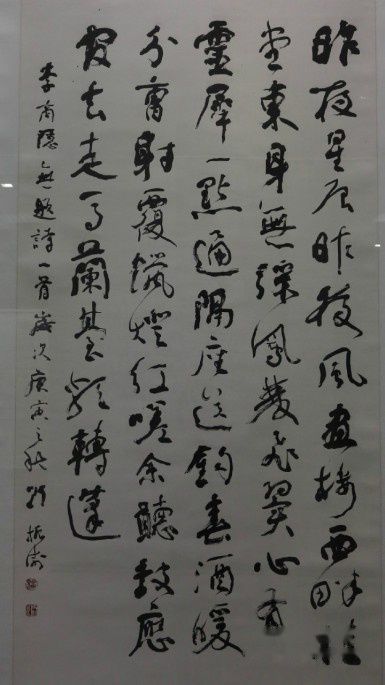 昨夜星辰昨夜風畫樓西畔桂
堂東身無綵鳳雙飛翼心有
靈犀一點通隔座送鈎春酒暖
分曹射覆蠟燈紅嗟余聽鼓應
官去走馬蘭臺類轉蓬
李商隱無題詩一首歲次庚寅之秋